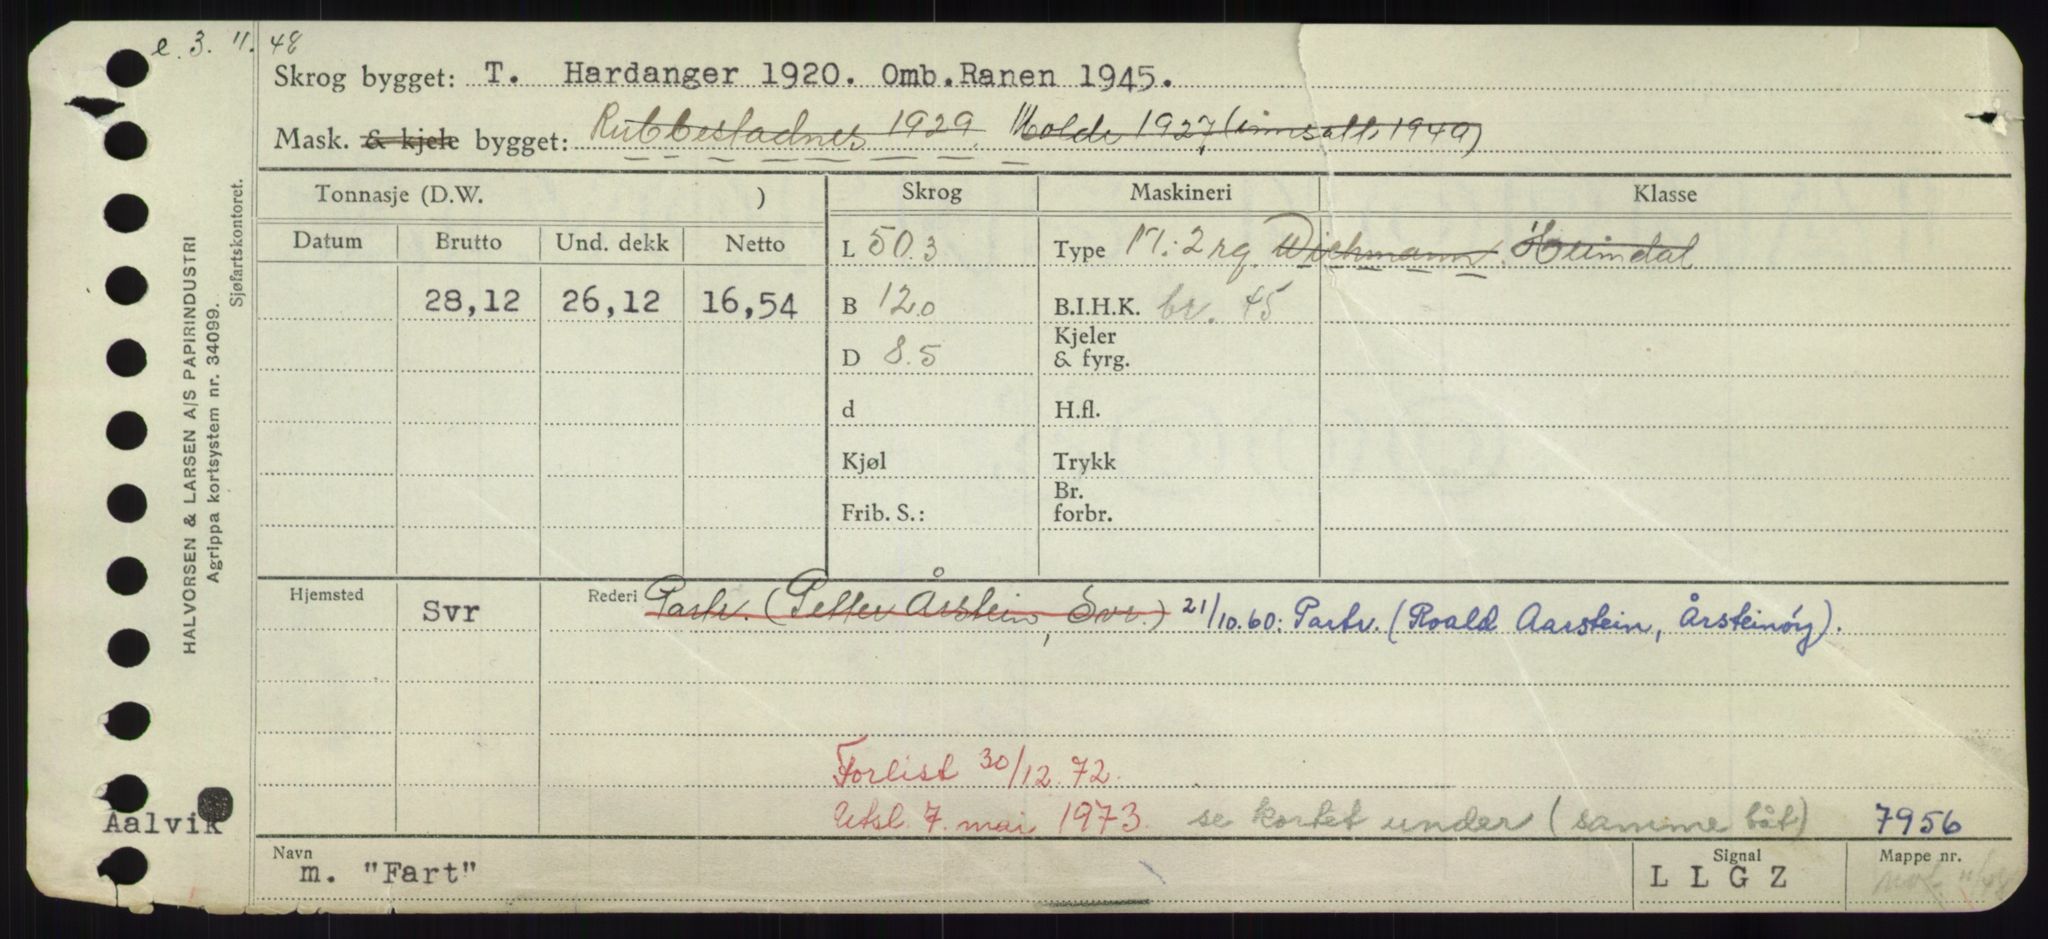 e. 3. 11. 48
Skrog bygget: T. Hardanger 1920. Omb.Ranen 1945.
Mask. & kjele bygget: Rubbestadnes 1929. Molde 1927, (innsatt 1949)
Tonnasje (D.W. ) Skrog Maskineri Klasse
Datum Brutto Und. dekk Netto L 50.3 Type M: 2 rg. Wichmann. Heimdal
28,12 26,12 16,54 B 12.0 B.I.H.K. br. 45
D 8.5 Kjeler & fyrg.
d H.fl.
Kjøl Trykk
Frib. S.: Br. forbr.
Hjemsted Svr Rederi Partr. (Petter Årstein, Svr.) 21/10.60: Partr. (Roald Aarstein, Årsteinöy).
Forlist 30/12.72.
Utsl. 7. mai 1973. se kortet under (samme båt) 7956
Aalvik
Navn m. "Fart" Signal L L G Z Mappe nr.
11/48
HALVORSEN & LARSEN A/S PAPIRINDUSTRI
Agrippa kortsystem nr. 34099.
Sjøfartskontoret.